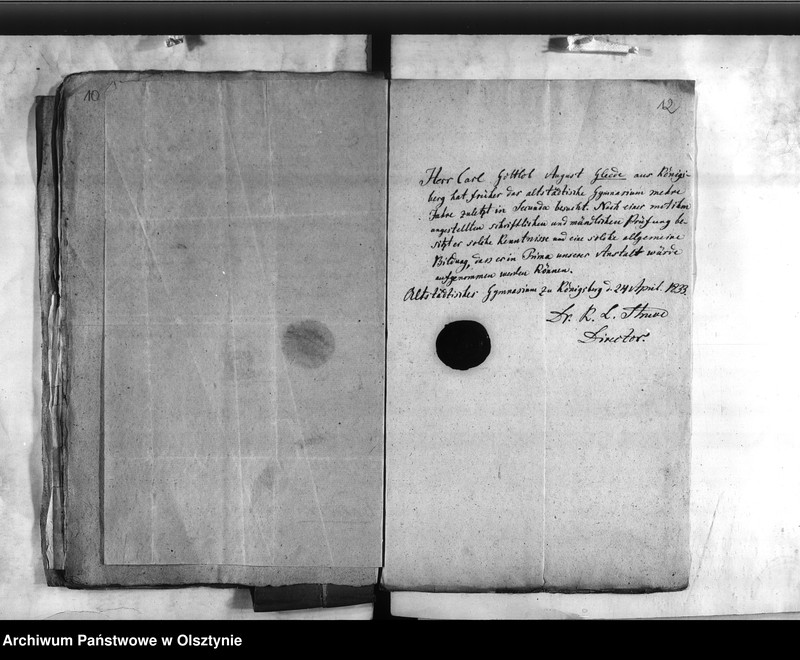 10
12
Herr Carl Gottlob August Gliede aus Königs-
berg hat früher das altstädtische Gymnasium mehre
Jahre zuletzt in Secunda besucht. Nach einer mit ihm
angestellten schriftlichen und mündlichen Prüfung be-
sitzt er solche Kenntnisse und eine solche allgemeine
Bildung, dass er in Prima unserer Anstalt würde
aufgenommen werden können.
Altstädtisches Gymnasium zu Königsbug d. 24 April. 1833.
Dr. K. L. Struve
Director.
Archiwum Państwowe w Olsztynie